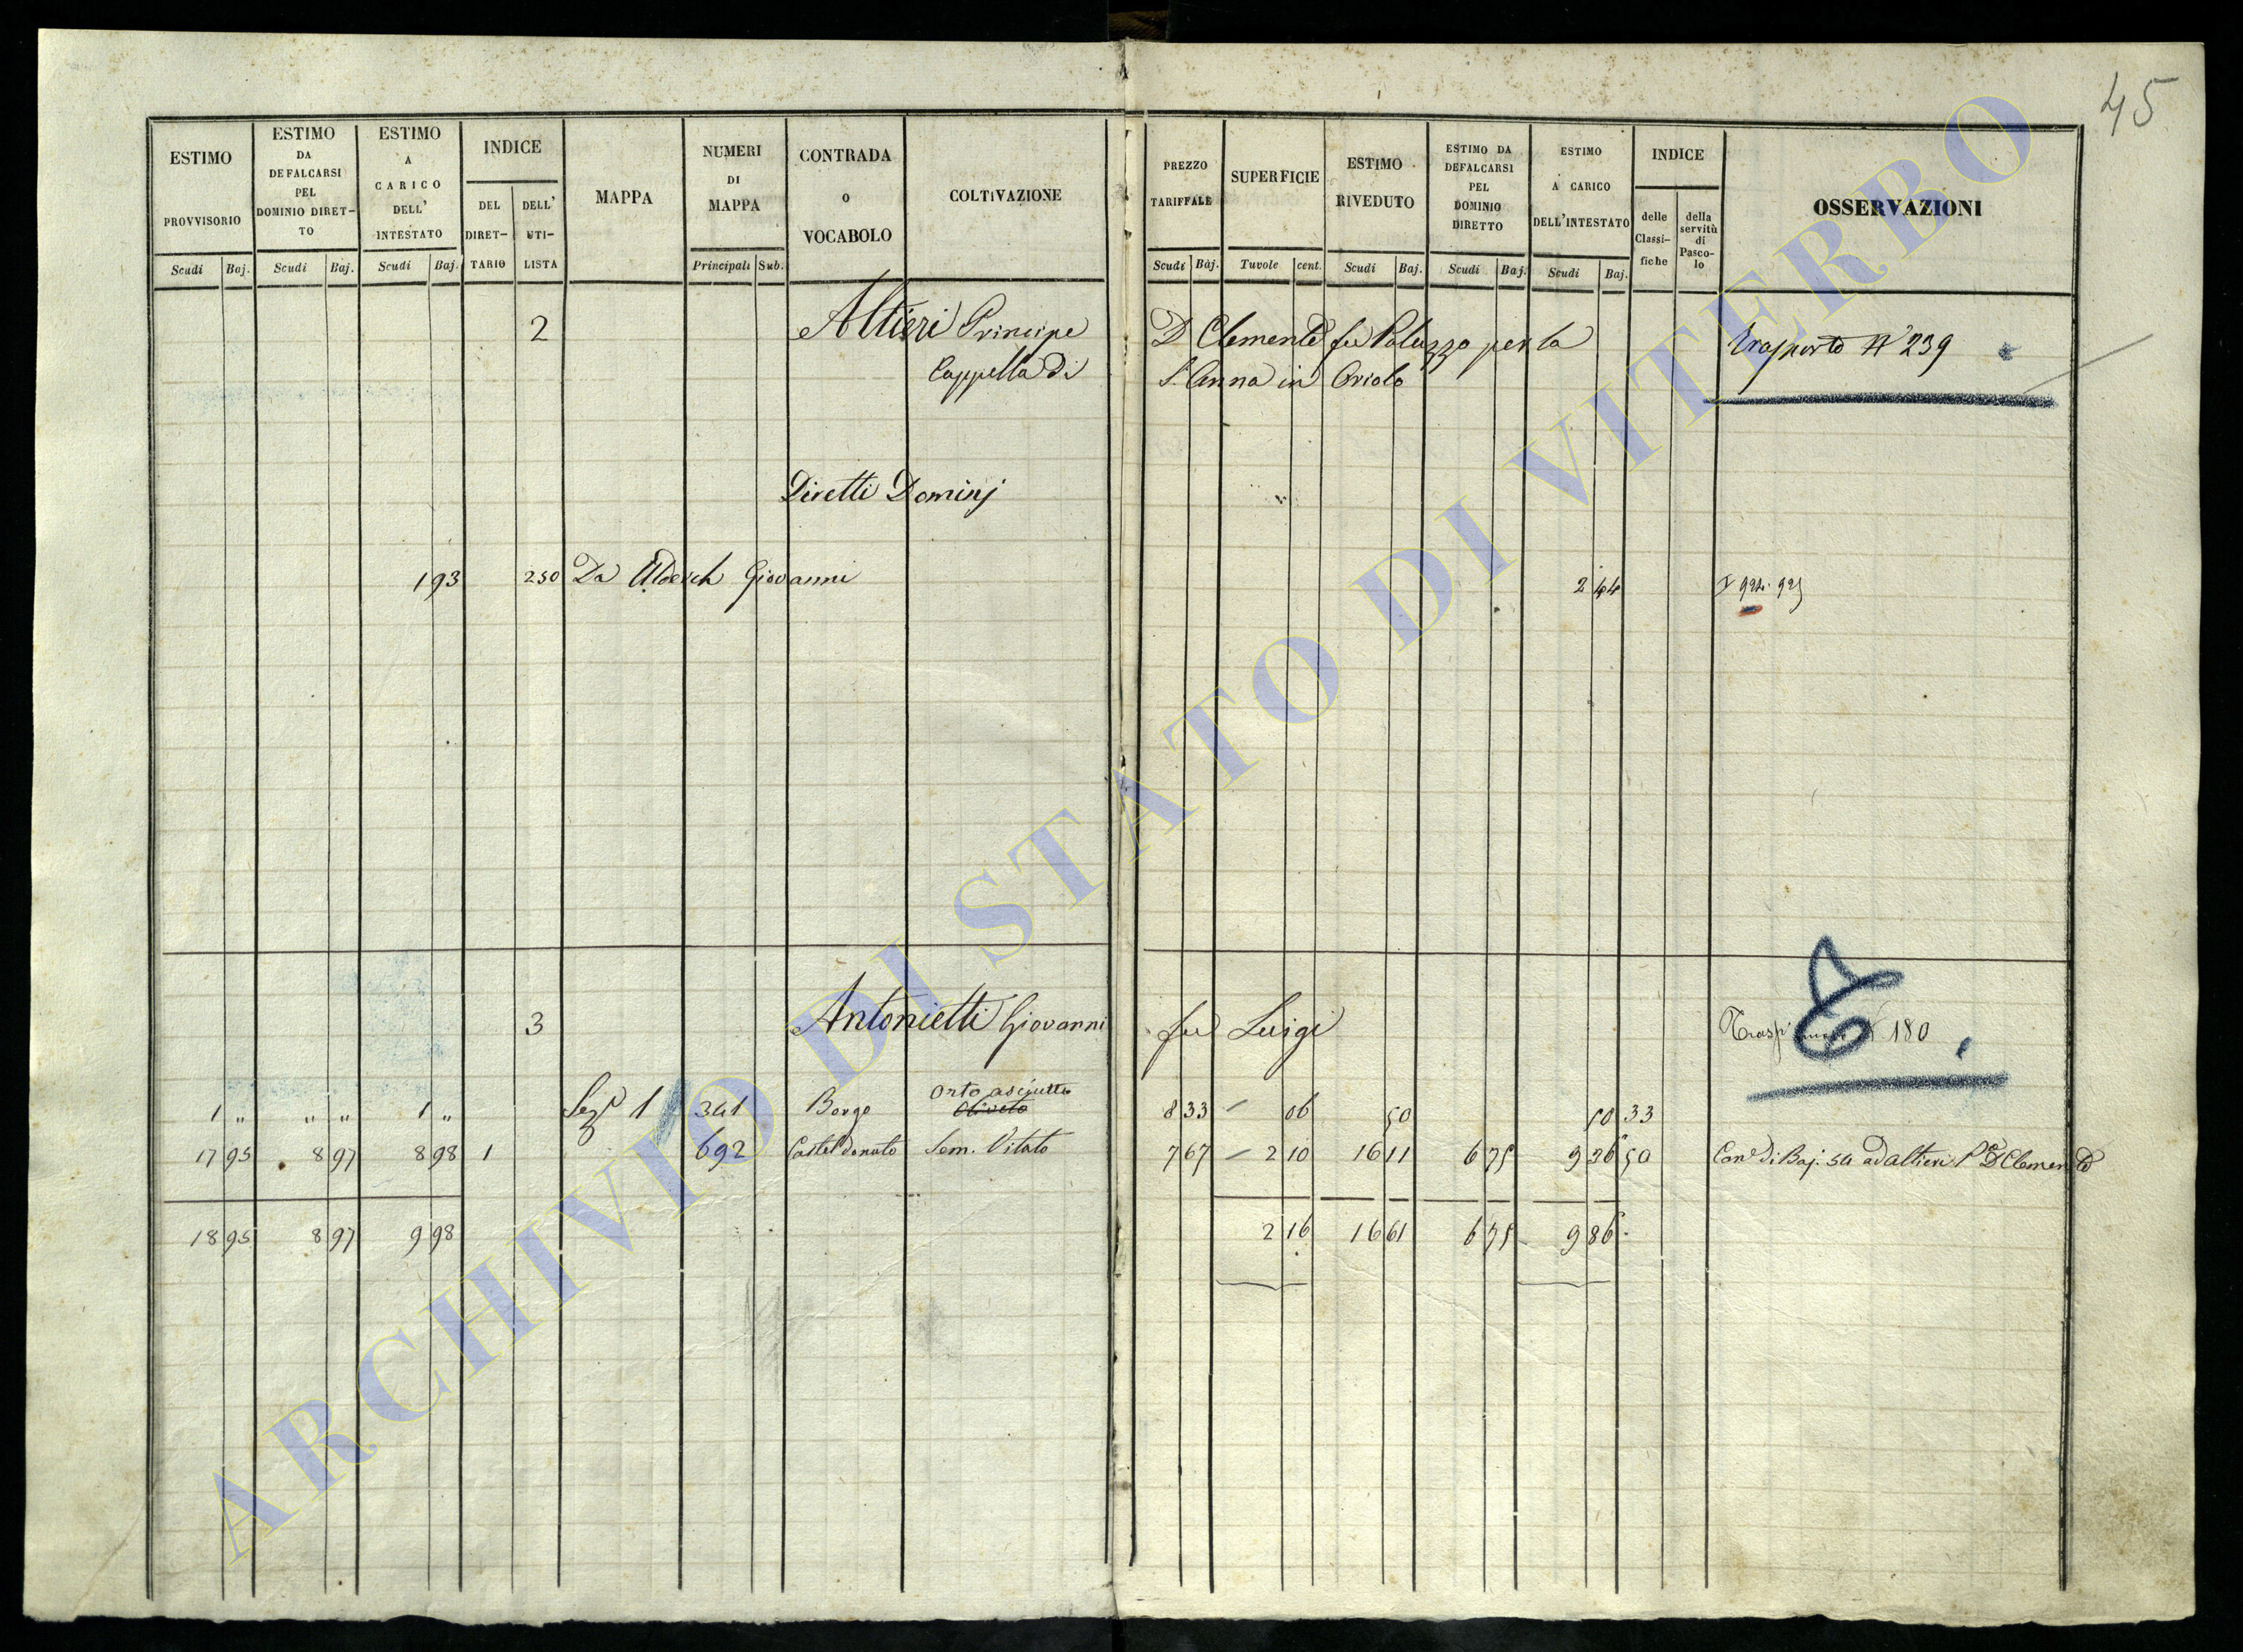 45
ESTIMO PROVVISORIO
ESTIMO DA DEFALCARSI PEL DOMINIO DIRETTO
ESTIMO A CARICO DELL' INTESTATO
INDICE
DEL DIRETTARIO
DELL' UTILISTA
MAPPA
NUMERI DI MAPPA
CONTRADA O VOCABOLO
COLTIVAZIONE
PREZZO TARIFFALE
SUPERFICIE
ESTIMO RIVEDUTO
ESTIMO DA DEFALCARSI PEL DOMINIO DIRETTO
ESTIMO A CARICO DELL'INTESTATO
INDICE
delle Classifiche
della servitù di Pascolo
OSSERVAZIONI
Scudi Baj. Scudi Baj. Scudi Baj. Principali Sub. Scudi Baj. Tavole cent. Scudi Baj. Scudi Baj. Scudi Baj.
2 Altieri Principe D Clemente fu Paluzzo per la Trasporto N 239
Cappella di S. Anna in Oriolo
Diretti Dominj
1 93 250 Da Giovanni 2 44
3 Antonietti Giovanni fu Luigi 180
Orto asciutto
1 „ „ „ 1 „ Sez 1 341 Borgo Oliveto 8 33 – 06 50 50 33
17 95 8 97 8 98 1 692 Castel donato Sem. Vitato 7 67 – 2 10 16 11 6 75 9 36 50 Can di Baj. 54 ad Altieri P D Clemente
18 95 8 97 9 98 2 16 16 61 6 75 9 86
ARCHIVIO DI STATO DI VITERBO